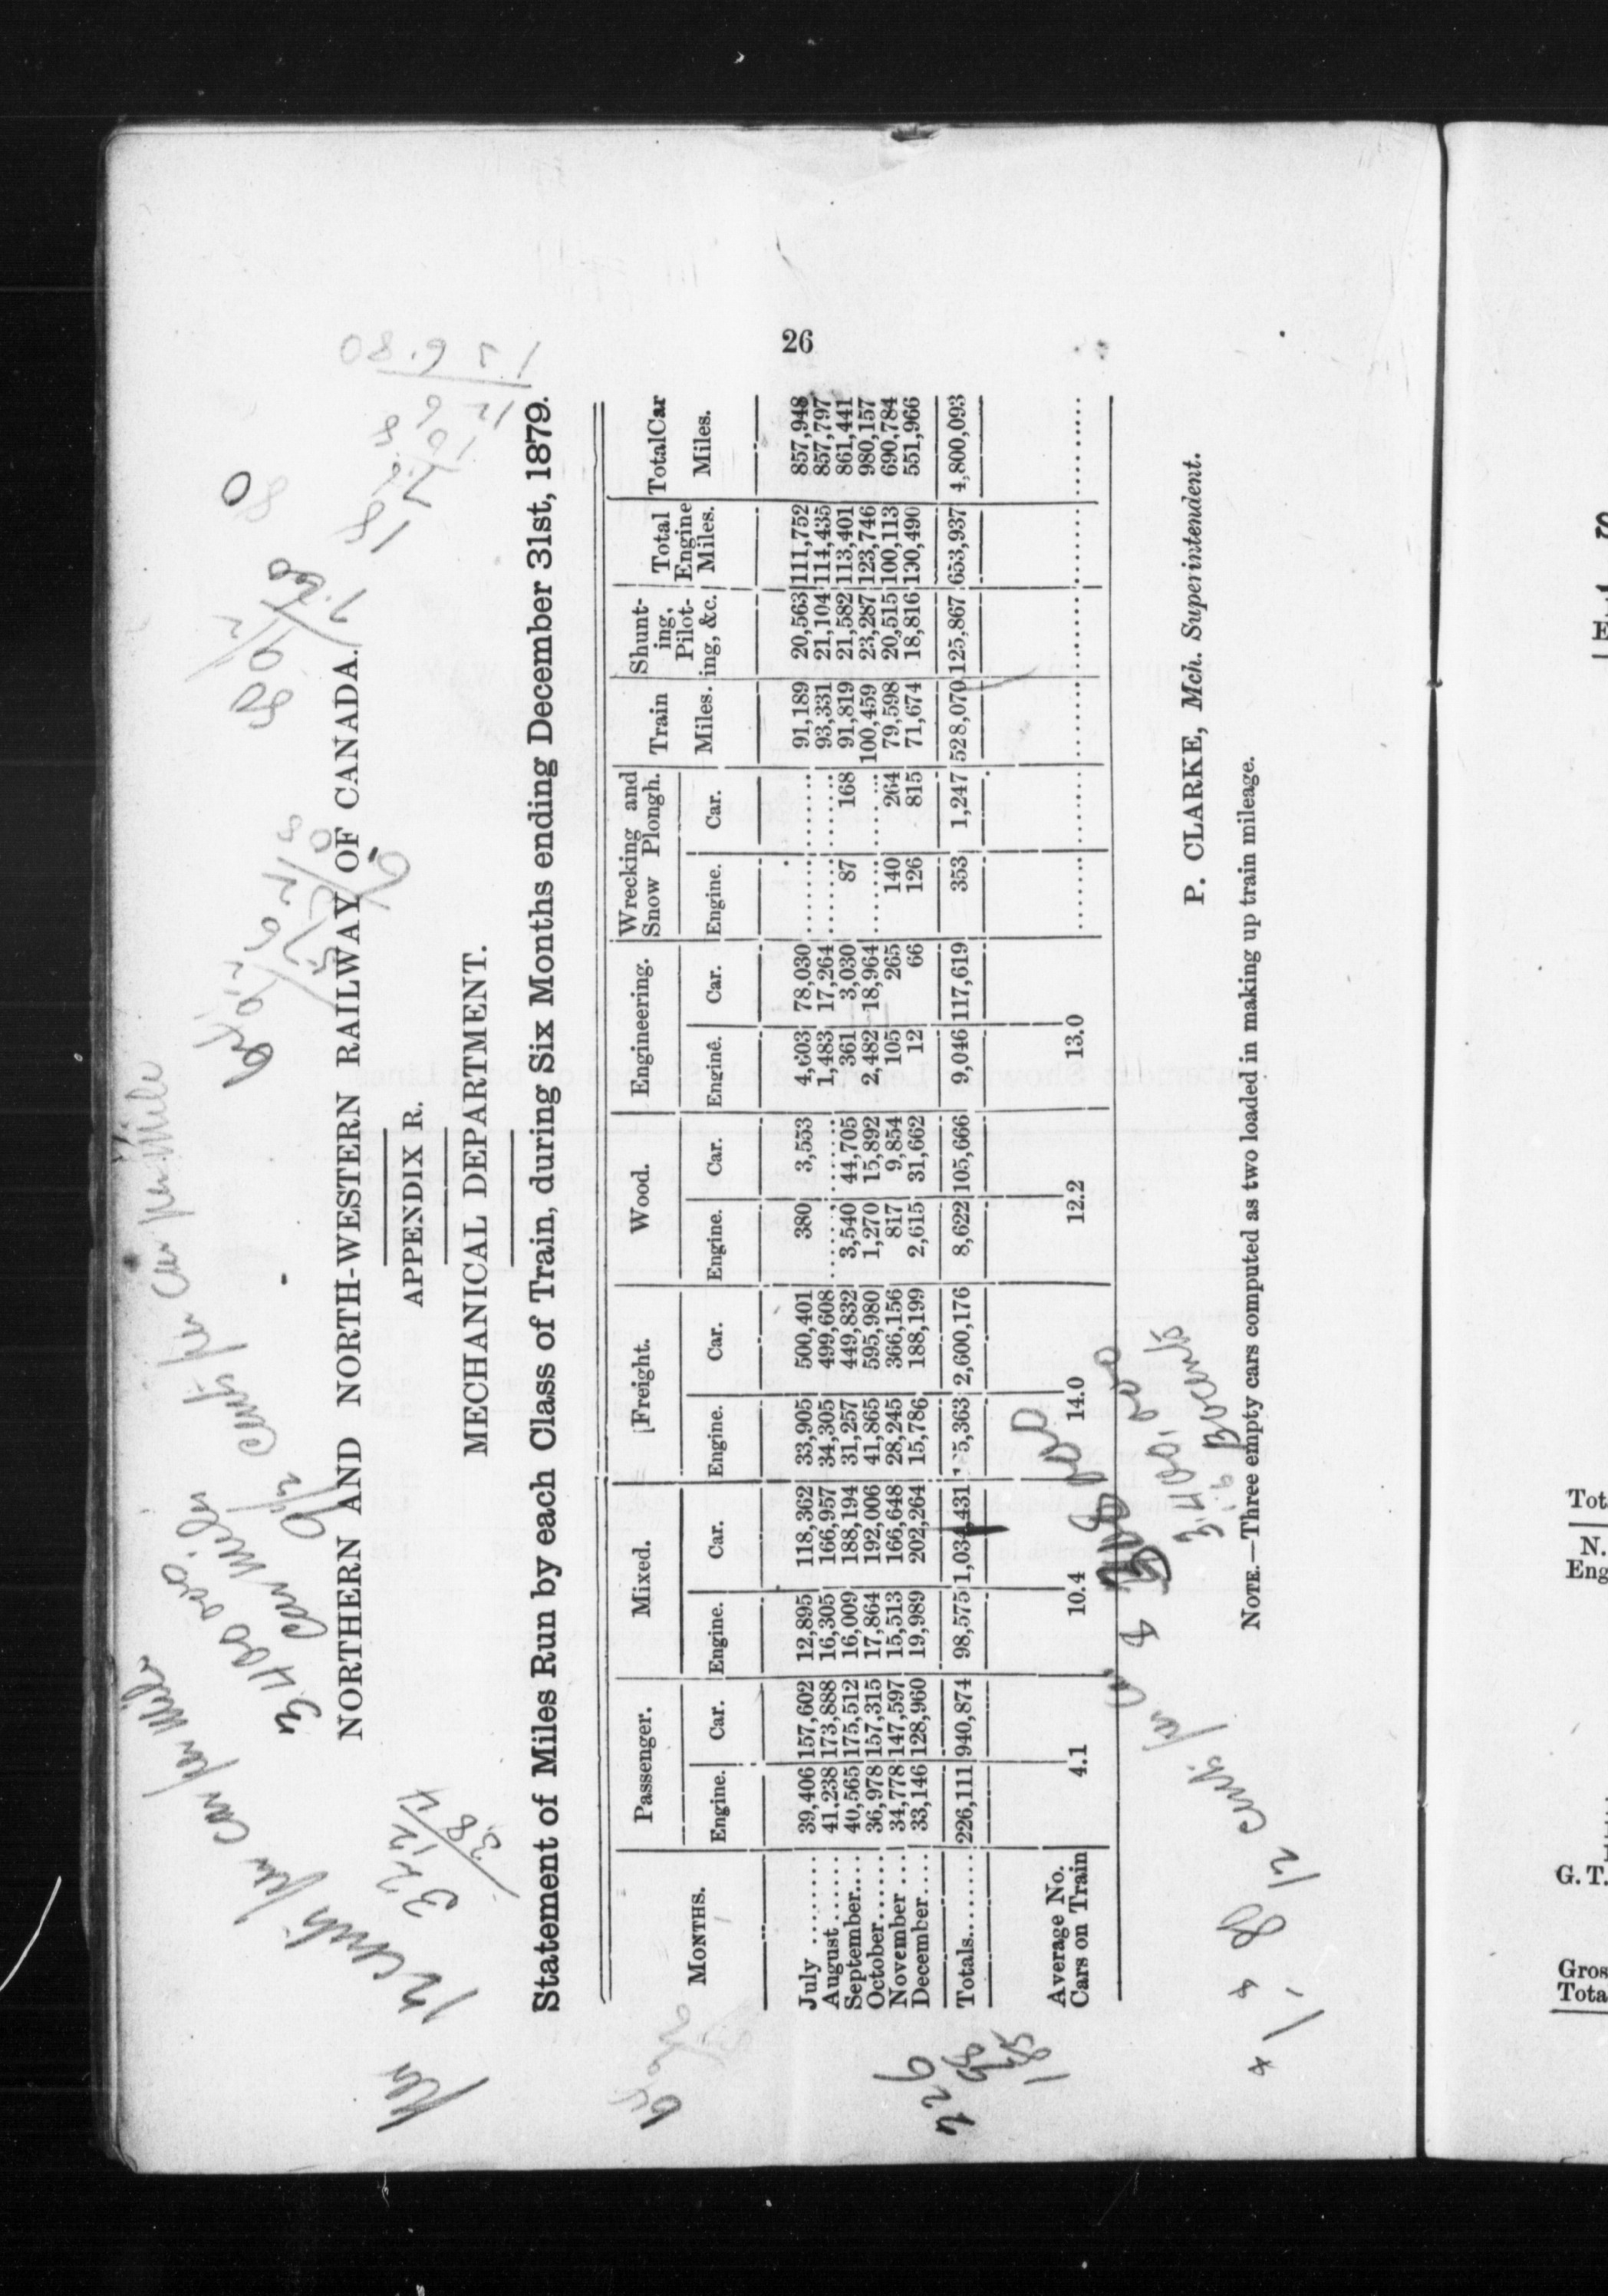 26
NORTHERN AND NORTH-WESTERN RAILWAY OF CANADA.
APPENDIX R.
MECHANICAL DEPARTMENT.
Statement of Miles Run by each Class of Train, during Six Months ending December 31st, 1879.
MONTHS. Passenger. Mixed. Freight. Wood. Engineering. Wrecking and Snow Plongh. Train Miles. Shunt-ing, Pilot-ing, &c. Total Engine Miles. Total Car Miles.
Engine. Car. Engine. Car. Engine. Car. Engine. Car. Engine. Car. Engine. Car.
July ........ 39,406 157,602 12,895 118,362 33,905 500,401 380 3,553 4,603 78,030 ........ ........ 91,189 20,563 111,752 857,948
August ...... 41,238 173,888 16,305 166,957 34,305 499,608 ........ ........ 1,483 17,264 ........ ........ 93,331 21,104 114,435 857,797
September.... 40,565 175,512 16,009 188,194 31,257 449,832 3,540 44,705 361 3,030 87 168 91,819 21,582 113,401 861,441
October...... 36,978 157,315 17,864 192,006 41,865 595,980 1,270 15,892 2,482 18,964 ........ ........ 100,459 23,287 123,746 980,157
November ... 34,778 147,597 15,513 166,648 28,245 366,156 817 9,854 105 265 140 264 79,598 20,515 100,113 690,784
December.... 33,146 128,960 19,989 202,264 15,786 188,199 2,615 31,662 12 66 126 815 71,674 18,816 190,490 551,966
Totals....... 226,111 940,874 98,575 1,034,431 5,363 2,600,176 8,622 105,666 9,046 117,619 353 1,247 528,070 125,867 653,937 4,800,093
Average No. Cars on Train 4.1 10.4 14.0 12.2 13.0 ........ ........ ........ ........ ........ ........
P. CLARKE, Mch. Superintendent.
NOTE.—Three empty cars computed as two loaded in making up train mileage.
12 cents per car per mile
3.400 000
Car miles
9½ cents per Car per Mile
12 cents per
Tot
N.
Eng
G. T.
Gros
Tota